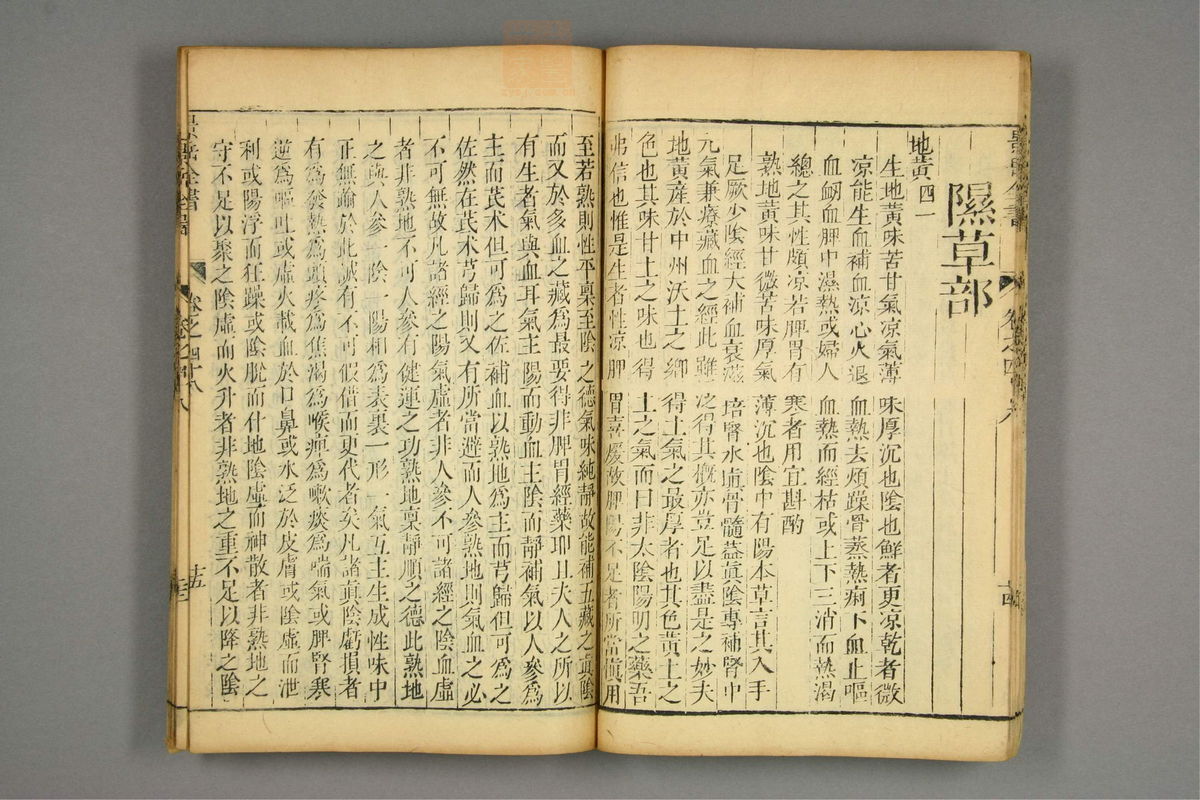 隰草部
地黃四一
生地黃味苦甘氣凉氣薄味厚沉也陰也鮮者更凉乾者微
凉能生血補血凉心火退血熱去煩躁骨蒸熱痢下血止嘔
血衂血脾中濕熱或婦人血熱而經枯或上下三消而熱渴
總之其性頗凉若脾胃有寒者用宜斟酌
熟地黃味甘微苦味厚氣薄沉也陰中有陽本草言其入手
足厥少陰經大補血衰滋培腎水塡骨髓益眞陰專補腎中
元氣兼療藏血之經此雖泛得其槪亦豈足以盡是之妙夫
地黃產於中州沃土之鄉得土氣之最厚者也其色黃土之
色也其味甘土之味也得土之氣而曰非太陰陽明之藥吾
弗信也惟是生者性凉脾胃喜煖故脾陽不足者所當愼用
至若熟則性平稟至陰之德氣味純靜故能補五藏之眞陰
而又於多血之藏爲最要得非脾胃經藥耶且夫人之所以
有生者氣與血耳氣主陽而動血主陰而靜補氣以人參爲
主而芪朮但可爲之佐補血以熟地爲主而芎歸但可爲之
佐然在芪朮芎歸則又有所當避而人參熟地則氣血之必
不可無故凡諸經之陽氣虛者非人參不可諸經之陰血虛
者非熟地不可人參有健運之功熟地稟靜順之德此熟地
之與人參一陰一陽相爲表裏一形一氣互主生成性味中
正無踰於此誠有不可假借而更代者矣凡諸眞陰虧損者
有爲發熱爲頭疼爲焦渴爲喉痺爲嗽痰爲喘氣或脾腎寒
逆爲嘔吐或虛火載血於口鼻或水泛於皮膚或陰虛而泄
利或陽浮而狂躁或陰脫而仆地陰虛而神散者非熟地之
守不足以聚之陰虛而火升者非熟地之重不足以降之陰
卷之四十八
十五